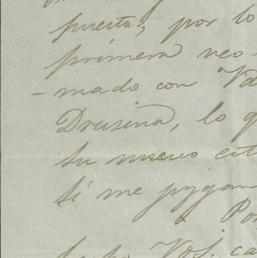 puesta, por lo
primera veo-
-mado con Va
Drusina, lo q
su nuevo est
sí me pagan
Por
Vos. ca